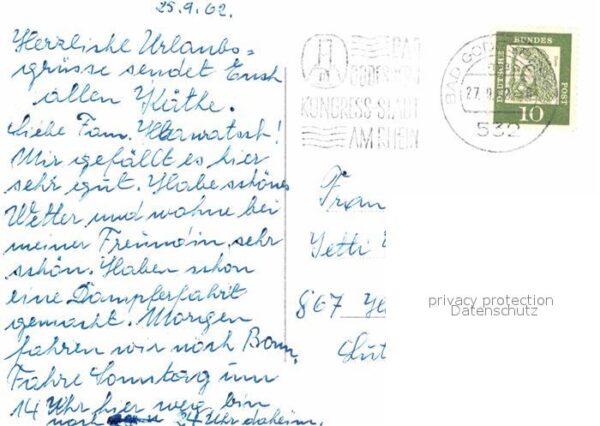 25.9.62.
Herzliche Urlaubs=
grüsse sendet Euch
allen Käthe.
Liebe Fam.
Mir gefällt es hier
sehr gut. Habe schönes
Wetter und wohne bei
meiner Freundin sehr
schön. Haben schon
eine Dampferfahrt
gemacht. Morgen
fahren wir nach Bonn.
Fahre Sonntag um
14 Uhr hier weg, bin
24 Uhr daheim.
BAD
GODESBERG
KONGRESS-STADT
AM RHEIN
BAD GODESBERG
27.9.62
532
DEUTSCHE BUNDESPOST
10
Frau
Jetti
867
privacy protection
Datenschutz